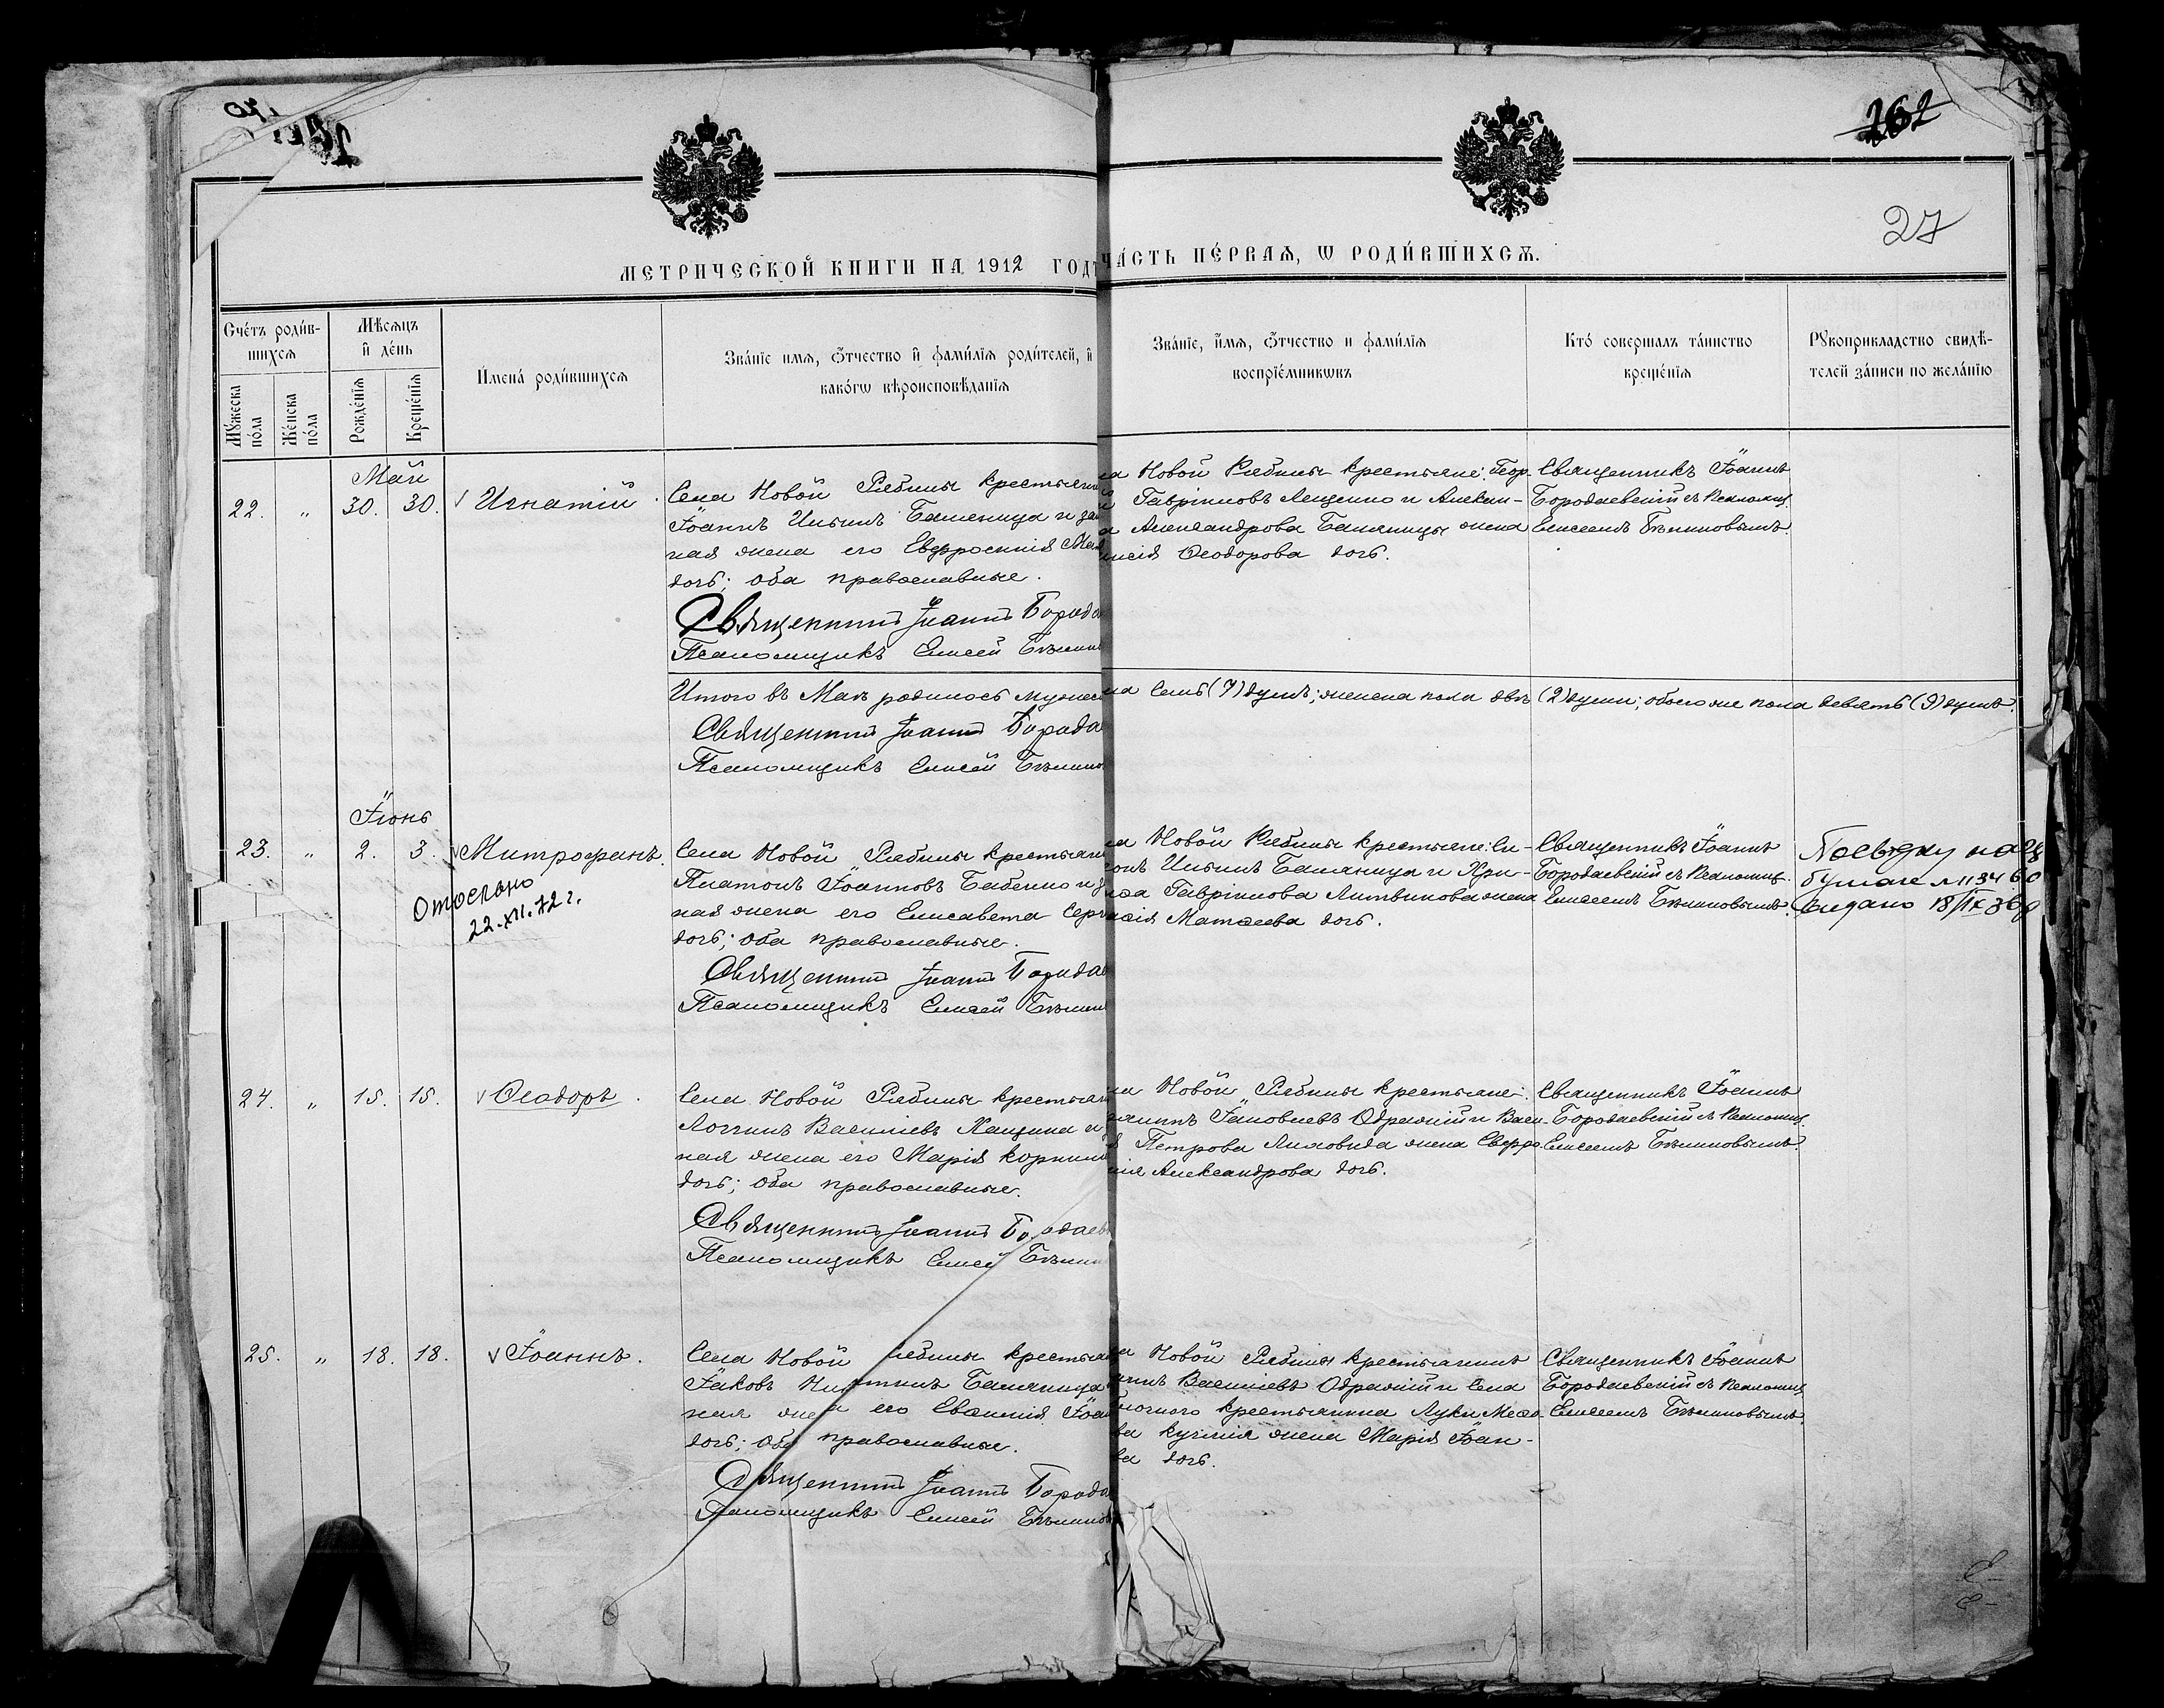 262
27
МЕТРИЧЕСКОЙ КНИГИ НА 1912 ГОДЪ
ЧА́СТЬ ПЕ́РВАЯ, Ѡ РОДИ́ВШИХСЯ.
Сче́тъ роди́в-
шихся
Му́жеска по́ла
Же́нска по́ла
Мѣ́сяцъ
и҆ де́нь
Рожде́нїя
Креще́нїя
И҆мена́ роди́вшихся
Зва́нїе имя, ѻ҆́тчество и҆ фами́лїя роди́телей, и҆
како́гѡ вѣроисповѣ́данїя
Зва́нїе, и҆́мя, ѻ҆́тчество и фами́лїя
воспрїе́мникѡвъ
Кто́ соверша́лъ та́инство
креще́нїя
Рꙋкоприкла́дство свидѣ́-
телей за́писи по жела́нїю
Май
22. " 30. 30. Игнатій.
Села Новой Рябины крестьянин
Іоаннъ Ильинъ Башеница и зак
ная жена его Евфросинія
дочь; оба православные.
Священникъ Іоаннъ Борода
Псаломщикъ Елисей Бѣлин
ла Новой Рябины крестьяне: Геор-
Гавріиловъ Лещенко и Алексан-
Александрова Башницы жена
Ѳеодорова дочь.
Священникъ Іоаннъ
Бородаевскій съ Псаломщ.
Елисеемъ Бѣлиновымъ.
Итого въ Маѣ родилось мужес
ла семь (7) душъ; женска пола двѣ (2) души; обоего же пола девять (9) душъ.
Священникъ Іоаннъ Борода
Псаломщикъ Елисей Бѣлин
Іюнь
23. " 2. 3. Митрофанъ.
Отослано
22.XII.72 г.
Села Новой Рябины крестьяни
Платонъ Іоанновъ Бабенко и з
ная жена его Елисавета Серг
дочь; оба православные.
Священникъ Іоаннъ Борода
Псаломщикъ Елисей Бѣлин
ла Новой Рябины крестьяне: Си-
Ильинъ Башница и Хри-
Гавріилова Литвинова жена
Матѳеева дочь.
Священникъ Іоаннъ
Бородаевскій съ Псаломщ.
Елисеемъ Бѣлиновымъ.
выдано 18/IX 36
24. " 15. 15. Ѳеодоръ.
Села Новой Рябины крестьян
Логгинъ Василіевъ Кащина и
ная жена его Марія Корнил
дочь; оба православные.
Священникъ Іоаннъ Бородаев
Псаломщикъ Елисей Бѣлин
ла Новой Рябины крестьяне:
Іаковлевъ Одражій и Васи-
Петрова Лиховида жена Евфро-
нія Александрова дочь.
Священникъ Іоаннъ
Бородаевскій съ Псаломщ.
Елисеемъ Бѣлиновымъ.
25. " 18. 18. Іоаннъ.
Села Новой Рябины крестьян
Іаковъ Никитинъ Башница
ная жена его Евѳимія Іоан
дочь; оба православные.
Священникъ Іоаннъ Борода
Псаломщикъ Елисей Бѣлинов
ла Новой Рябины крестьянинъ
Василіевъ Одражій и села
крестьянина Луки
ва жена Марія Іоан-
ва дочь.
Священникъ Іоаннъ
Бородаевскій съ Псаломщ.
Елисеемъ Бѣлиновымъ.